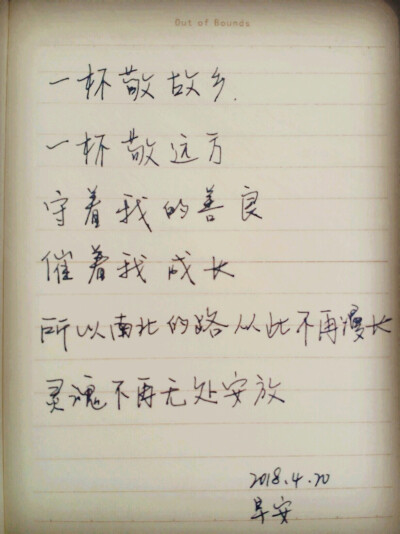 Out of Bounds
一杯敬故乡.
一杯敬远方
守着我的善良
催着我成长
所以南北的路从此不再漫长
灵魂不再无处安放
2018.4.20
早安